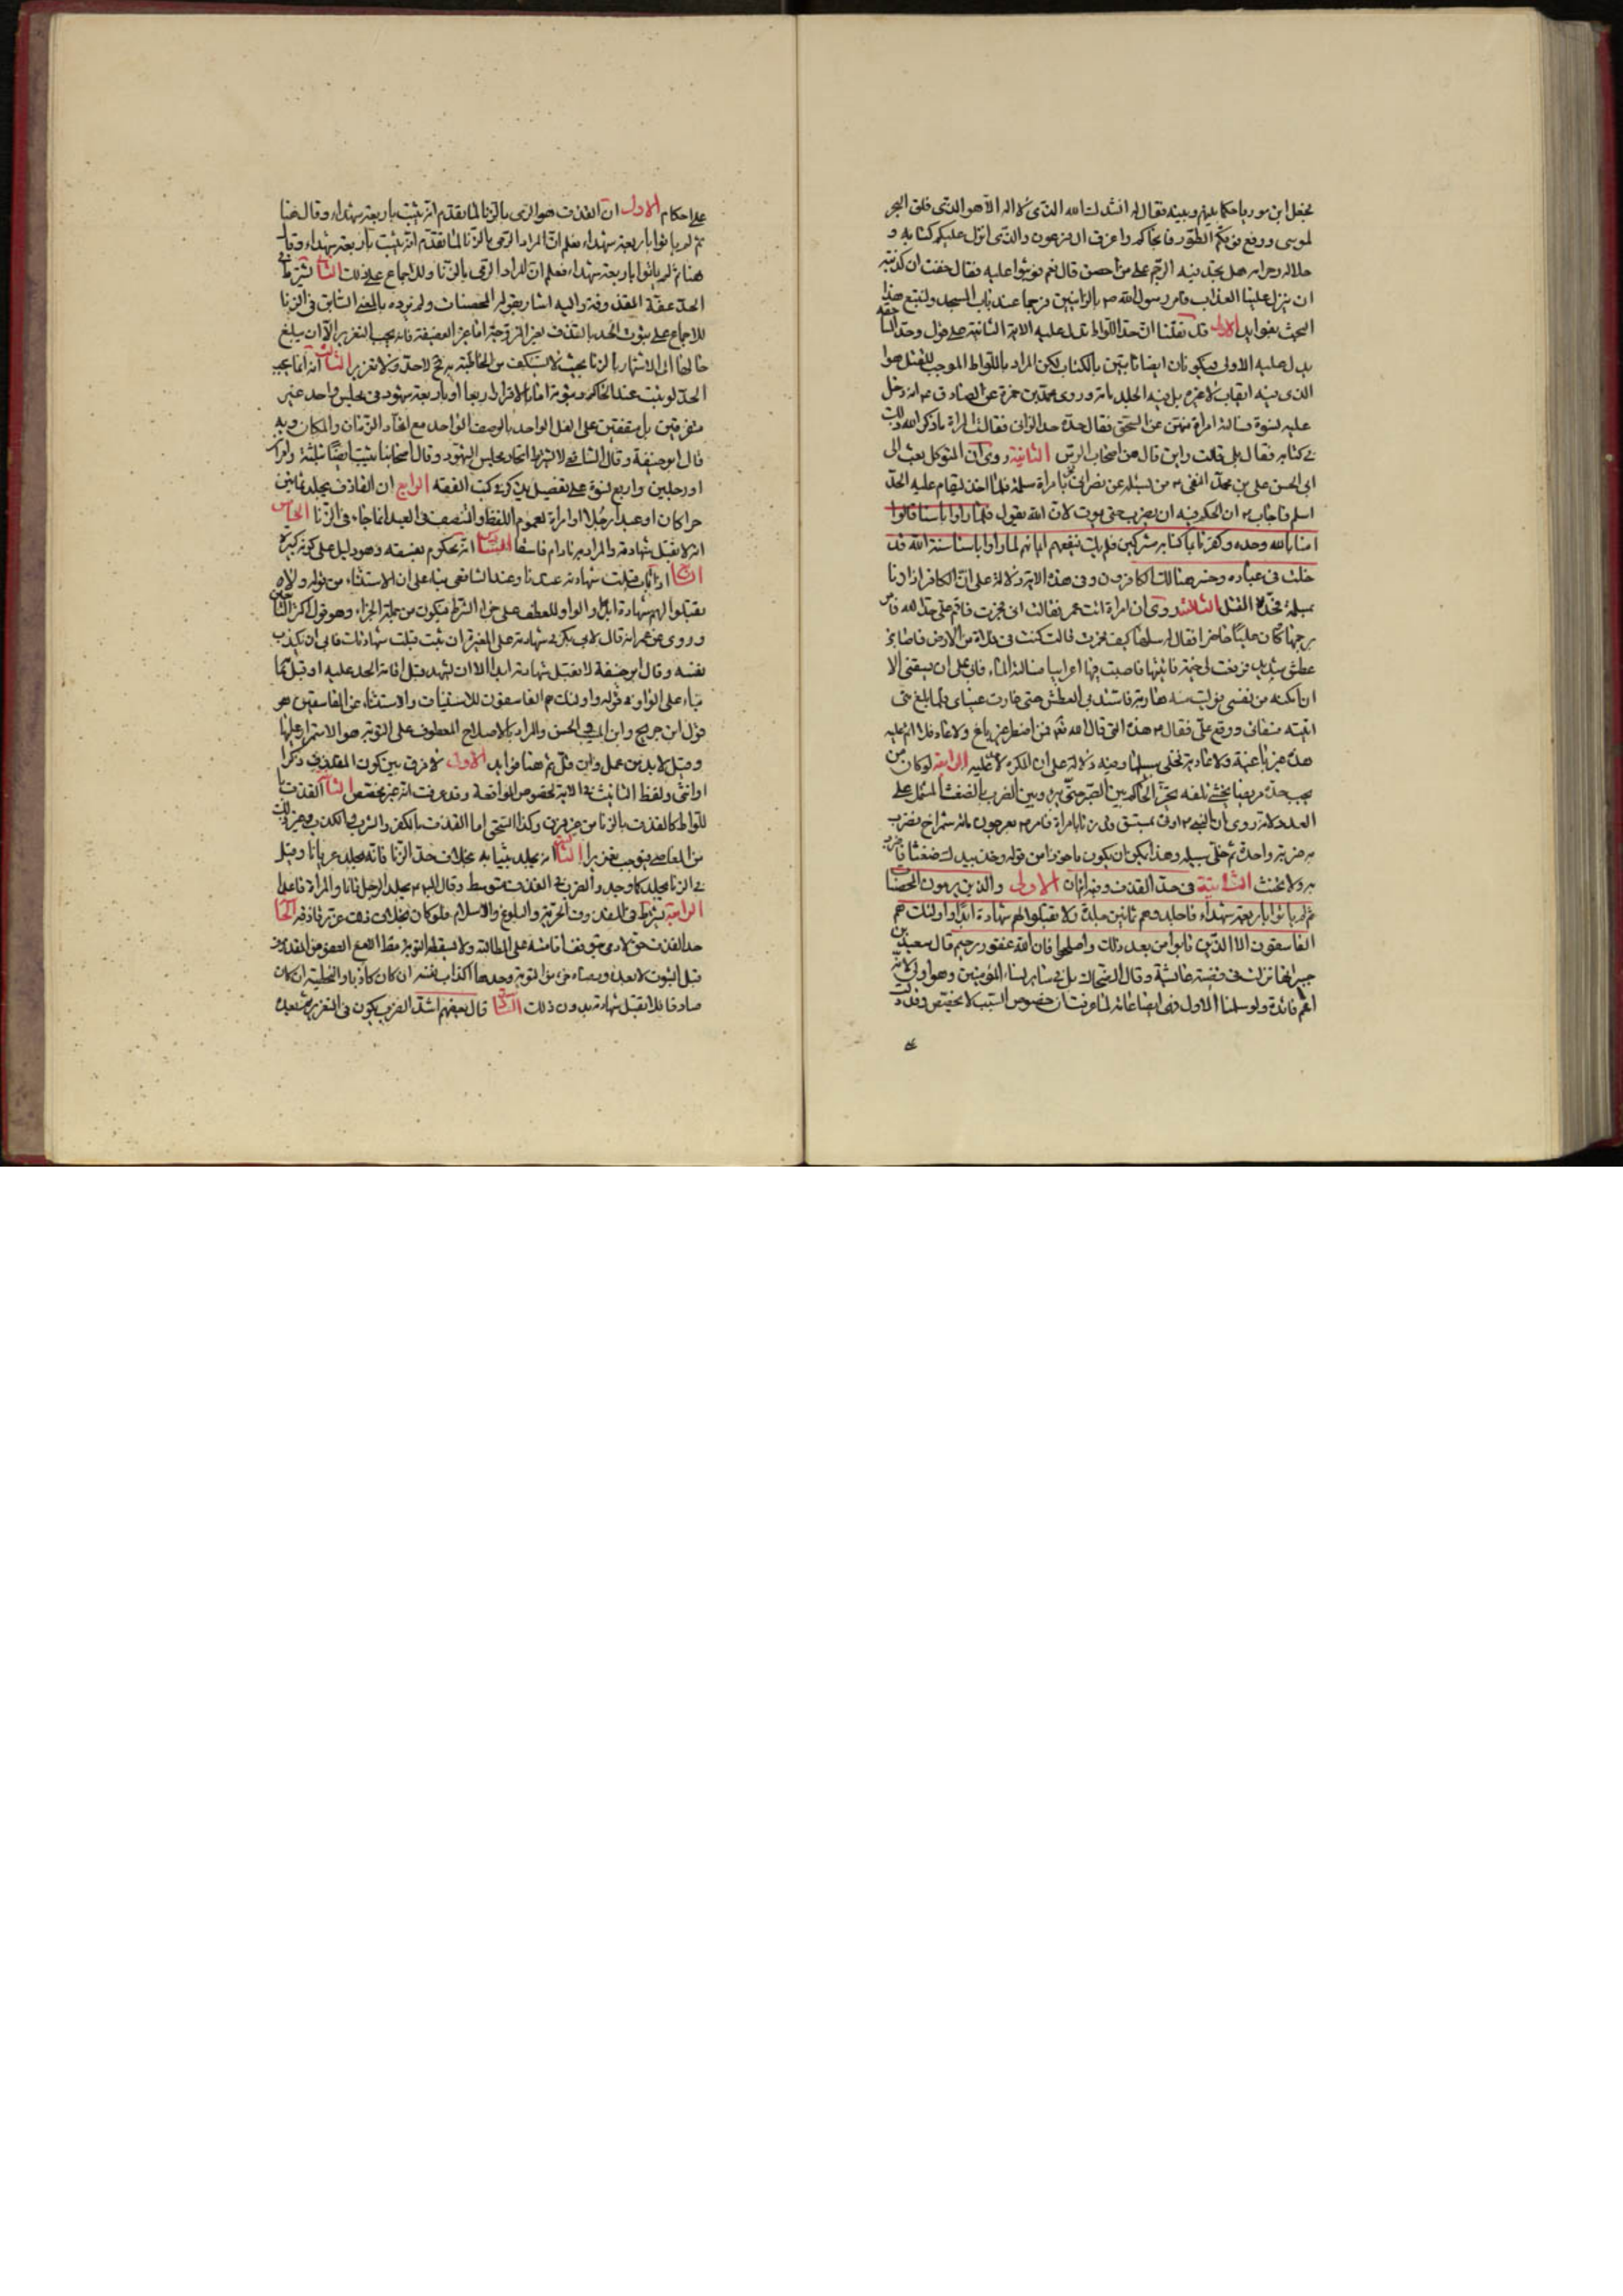 فجعل ابن صوريا حكما بينهم وبينه فقال له انشدك الله الذي لا اله الا هو الذي فلق البحر
لموسى ورفع فوقكم الطور فانجاكم واغرق ال فرعون والذي انزل عليكم كتابه و
حلاله وحرامه هل تجد فيه الرجم على من احصن قال نعم فوثبوا عليه فقال خفت ان كذبته
ان ينزل علينا العذاب فامر رسول الله ص بالزانيين فرجما عند باب المسجد ولنتبع هذا
البحث بفوايد الاولى قد نقلنا ان حد اللواط تدل عليه الاية الثانية على قول وحد السحق
يدل عليه الاولى فيكونان ايضا ثابتين بالكتاب لكن المراد باللواط الموجب للقتل هو
الذي فيه ايقاب لا غيره بل فيه الجلد مائة وروى محمد بن حمزة عن الصادق ع انه دخل
عليه نسوة فسالته امراة منهن عن السحق فقال حده حد الزاني فقالت المراة ما ذكر الله ذلك
في كتابه فقال بلى قالت واين قال هن اصحاب الرس الثانية روي ان المتوكل بعث الى
ابي الحسن علي بن محمد النقي ع من يسئله عن نصراني زنا بامراة مسلمة فلما اخذ ليقام عليه الحد
اسلم فاجاب ع ان الحكم فيه ان يضرب حتى يموت لان الله يقول فلما راوا باسنا قالوا
امنا بالله وحده وكفرنا بما كنا به مشركين فلم يك ينفعهم ايمانهم لما راوا باسنا سنة الله التي قد
خلت في عباده وخسر هنالك الكافرون وفي هذه الاية دلالة على ان الكافر اذا زنا
بمسلمة فحده القتل الثالثة روي ان امراة اتت عمر فقالت اني فجرت فاقم علي حد الله فامر
برجمها وكان علي ع حاضرا فقال له سلها كيف فجرت قالت كنت في فلاة من الارض فاصابني
عطش شديد فرفعت لي خيمة فاتيتها فاصبت فيها اعرابيا فسالته الماء فابى علي ان يسقيني الا
ان امكنه من نفسي فوليت منه هاربة فاشتد بي العطش حتى غارت عيناي فلما بلغ مني
اتيته فسقاني ووقع علي فقال ع هذه التي قال الله تع فمن اضطر غير باغ ولا عاد فلا اثم عليه
هذه غير باغية ولا عادية فخلى سبيلها وفيه دلالة على ان المكره لا حد عليه الرابعة لو كان من
يجب حده مريضا يخشى تلفه يخير الحاكم بين الصبر حتى يبرء وبين الضرب بالضغث المشتمل على
العدد لما روي ان النبي ص اوتي بمستسق وقد زنا بامراة فامر ص بعرجون مائة شمراخ فضرب
به ضربة واحدة ثم خلى سبيله وهذا يمكن ان يكون ماخوذا من قوله وخذ بيدك ضغثا فاضرب
به ولا تحنث الثانية في حد القذف وفيه ايتان الاولى والذين يرمون المحصنات
ثم لم ياتوا باربعة شهداء فاجلدوهم ثمانين جلدة ولا تقبلوا لهم شهادة ابدا واولئك هم
الفاسقون الا الذين تابوا من بعد ذلك واصلحوا فان الله غفور رحيم قال سعيد بن
جبير انها نزلت في قضية عائشة وقال الضحاك بل في سائر نساء المؤمنين وهو اولى لانه
اعم فائدة ولو سلمنا الاول فهي ايضا عامة لما عرفت ان خصوص السبب لا يخصص وقد دلت
على
على احكام الاول ان القذف هو الرمي بالزنا لما تقدم انه يثبت باربعة شهداء وقال هنا
ثم لم ياتوا باربعة شهداء فعلم ان المراد الرمي بالزنا لما تقدم انه يثبت باربعة شهداء وقال
هنا ثم لم ياتوا باربعة شهداء فعلم ان المراد الرمي بالزنا وللاجماع على ذلك الثاني يشترط في
الحد عفة المقذوفة واليه اشار بقوله المحصنات ولم نرده بالمعنى السابق في الزنا
للاجماع على ثبوت الحد بالقذف لغير المزوجة اما غير العفيفة فانه يجب التعزير الا ان يبلغ
حالها الى الاشتهار بالزنا بحيث لا تستنكف من المخاطبة به فح لا حد ولا تعزير الثالث انه انما يجب
الحد لو ثبت عند الحاكم وثبوته اما بالاقرار اربعا او باربعة شهود في مجلس واحد غير
متفرقين بل متفقين على الفعل الواحد بالوصف الواحد مع اتحاد الزمان والمكان وبه
قال ابو حنيفة وقال الشافعي لا يشترط اتحاد مجلس الشهود وقال اصحابنا يثبت ايضا بثلثة وامراتين
او رجلين واربع نسوة على تفصيل يذكر في كتب الفقه الرابع ان القاذف يجلد ثمانين
حرا كان او عبدا رجلا او امراة لعموم اللفظ والتنصيف في العبد انما جاء في الزنا الخامس
انه لا يقبل شهادته والمراد به ما دام فاسقا السادس انه يحكم بفسقه وهو دليل على كونه كبيرة
السابع اذا تاب قبلت شهادته عندنا وعند الشافعي بناء على ان الاستثناء من قوله ولا
تقبلوا لهم شهادة ابدا والواو للعطف على جزاء الشرط فيكون من جملة الجزاء وهو قول اكثر التابعين
وروي عن عمر انه قال لابي بكرة في شهادته على المغيرة ان تبت قبلت شهادتك فابى ان يكذب
نفسه وقال ابو حنيفة لا تقبل شهادته ابدا الا ان يشهد قبل اقامة الحد عليه او قبل تمامه
بناء على ان الواو في قوله واولئك هم الفاسقون للاستيناف والاستثناء عن الفاسقين هو
قول ابن جريج وابن المسيب والحسن والمراد بالاصلاح المعطوف على التوبة هو الاستمرار عليها
وقيل لا بد من عمل وان قل ثم هنا فوايد الاولى لا فرق بين كون المقذوف ذكرا
او انثى ولفظ التانيث في الاية لخصوص الواقعة وقد عرفت انه غير مخصص الثانية القذف با
للواط كالقذف بالزنا من غير فرق وكذا السحق اما القذف بالكفر والشرب والكذب وغير ذلك
من المعاصي فيوجب تعزيرا الثالثة انه يجلد بثيابه بخلاف حد الزنا فانه يجلد عريانا وقيل
في الزنا يجلد كما وجد والضرب في القذف متوسط وقال الباقر ع يجلد الرجل قائما والمراة قاعدا
الرابعة يشترط في المقذوف الحرية والبلوغ والاسلام فلو كان بخلاف ذلك عزر قاذفه الخامسة
حد القذف حق لادمي يتوقف اقامته على المطالبة ولا يسقطه التوبة فقط الا مع العفو من المقذوف
قبل الثبوت لا بعده وبعضه خرى من التوبة وحدها اكذاب نفسه ان كان كاذبا والتخطئة ان كان
صادقا فلا تقبل شهادته بدون ذلك السادسة قال بعضهم اشد الضرب يكون في التعزير ثم بعده